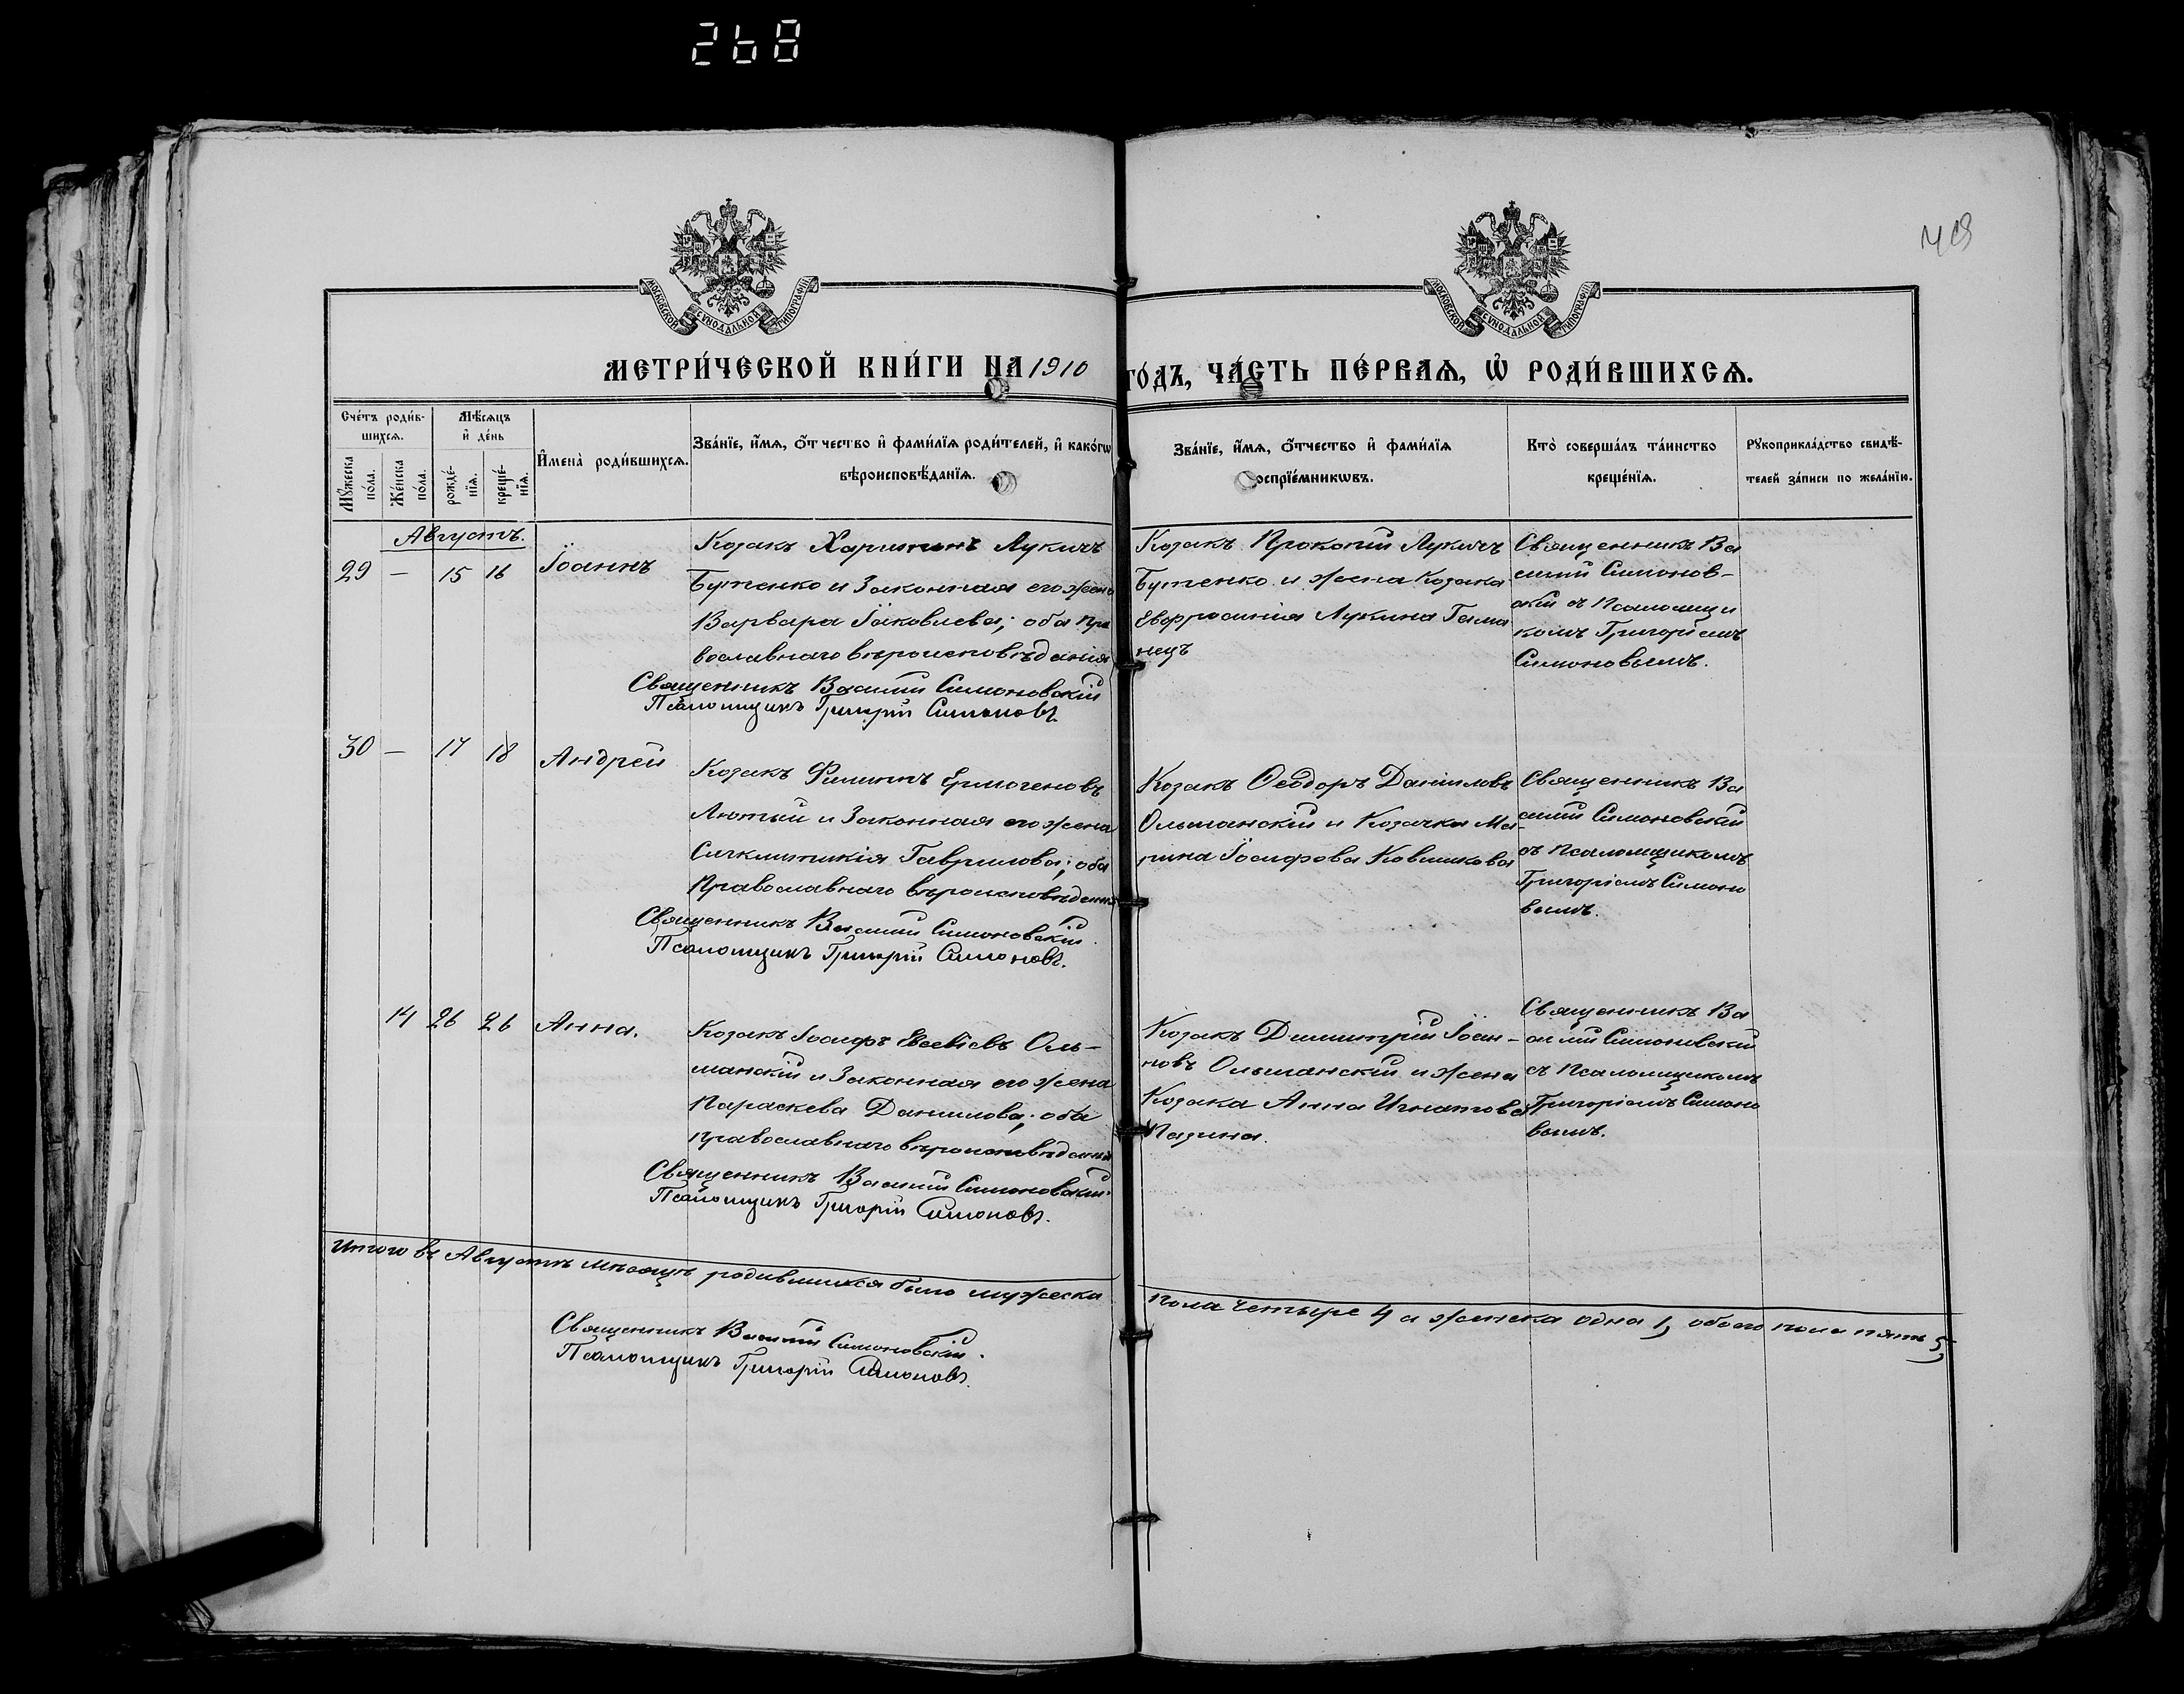 268
49
МОСКОВСКОЙ СѴНОДАЛЬНОЙ ТИПОГРАФІИ
МОСКОВСКОЙ СѴНОДАЛЬНОЙ ТИПОГРАФІИ
МЕТРИ́ЧЕСКОЙ КНИ́ГИ НА 1910 ГО́ДЪ, ЧА́СТЬ ПЕ́РВАѦ, Ѡ҆ РОДИ́ВШИХСѦ.
Сче́тъ роди́в-
шихсѧ.
Мꙋ́жеска по́ла.
Же́нска по́ла.
Мѣ́сѧцъ
и҆ де́нь
рожде́-
нїѧ.
креще́-
нїѧ.
И҆мена̀ роди́вшихсѧ.
Зва́нїе, и҆́мѧ, ѻ҆́тчество и҆ фами́лїѧ роди́телей, и҆ како́гѡ
вѣроисповѣ́данїѧ.
Зва́нїе, и҆́мѧ, ѻ҆́тчество и҆ фами́лїѧ
воспрїе́мникѡвъ.
Кто̀ соверша́лъ та́инство
креще́нїѧ.
Рꙋкоприкла́дство свидѣ́-
телей за́писи по жела́нїю.
Августъ.
29 — 15 16 Іоаннъ
Козакъ Харитонъ Лукичъ
Бутенко и Законная его жена
Варвара Іаковлева; оба пра
вославнаго вѣроисповѣданія
Священникъ Василій Симоновскій
Псаломщикъ Григорій Симоновъ.
Козакъ Прокопій Лукичъ
Бутенко и жена Козака
Евфросинія Лукина Гама
нецъ
Священникъ Ва
силій Симонов-
скій съ Псаломщи
комъ Григоріемъ
Симоновымъ.
30 — 17 18 Андрей
Козакъ Филиппъ Ермогеновъ
Лютый и Законная его жена
Сигклитикія Гаврилова; оба
Православнаго вѣроисповѣданія
Священникъ Василій Симоновскій.
Псаломщикъ Григорій Симоновъ.
Козакъ Ѳеодоръ Даниловъ
Ольшанскій и Козачка Ма-
рина Іосифова
Священникъ Ва
силій Симоновскій
съ Псаломщикомъ
Григоріемъ Симоно
вымъ.
14 26 26 Анна.
Козакъ Іосифъ Евсевіевъ Оль-
шанскій и Законная его жена
Параскева Данилова; оба
православнаго вѣроисповѣданія
Священникъ Василій Симоновскій.
Псаломщикъ Григорій Симоновъ.
Козакъ Димитрій Іоан-
новъ Ольшанскій и жена
Козака Анна Игнатова
Священникъ Ва
силій Симоновскій
съ Псаломщикомъ
Григоріемъ Симоно
вымъ.
Итого въ Августѣ мѣсяцѣ родившихся было мужеска пола четыре 4 а женска одна 1, обоего пола пять 5,
Священникъ Василій Симоновскій.
Псаломщикъ Григорій Симоновъ.